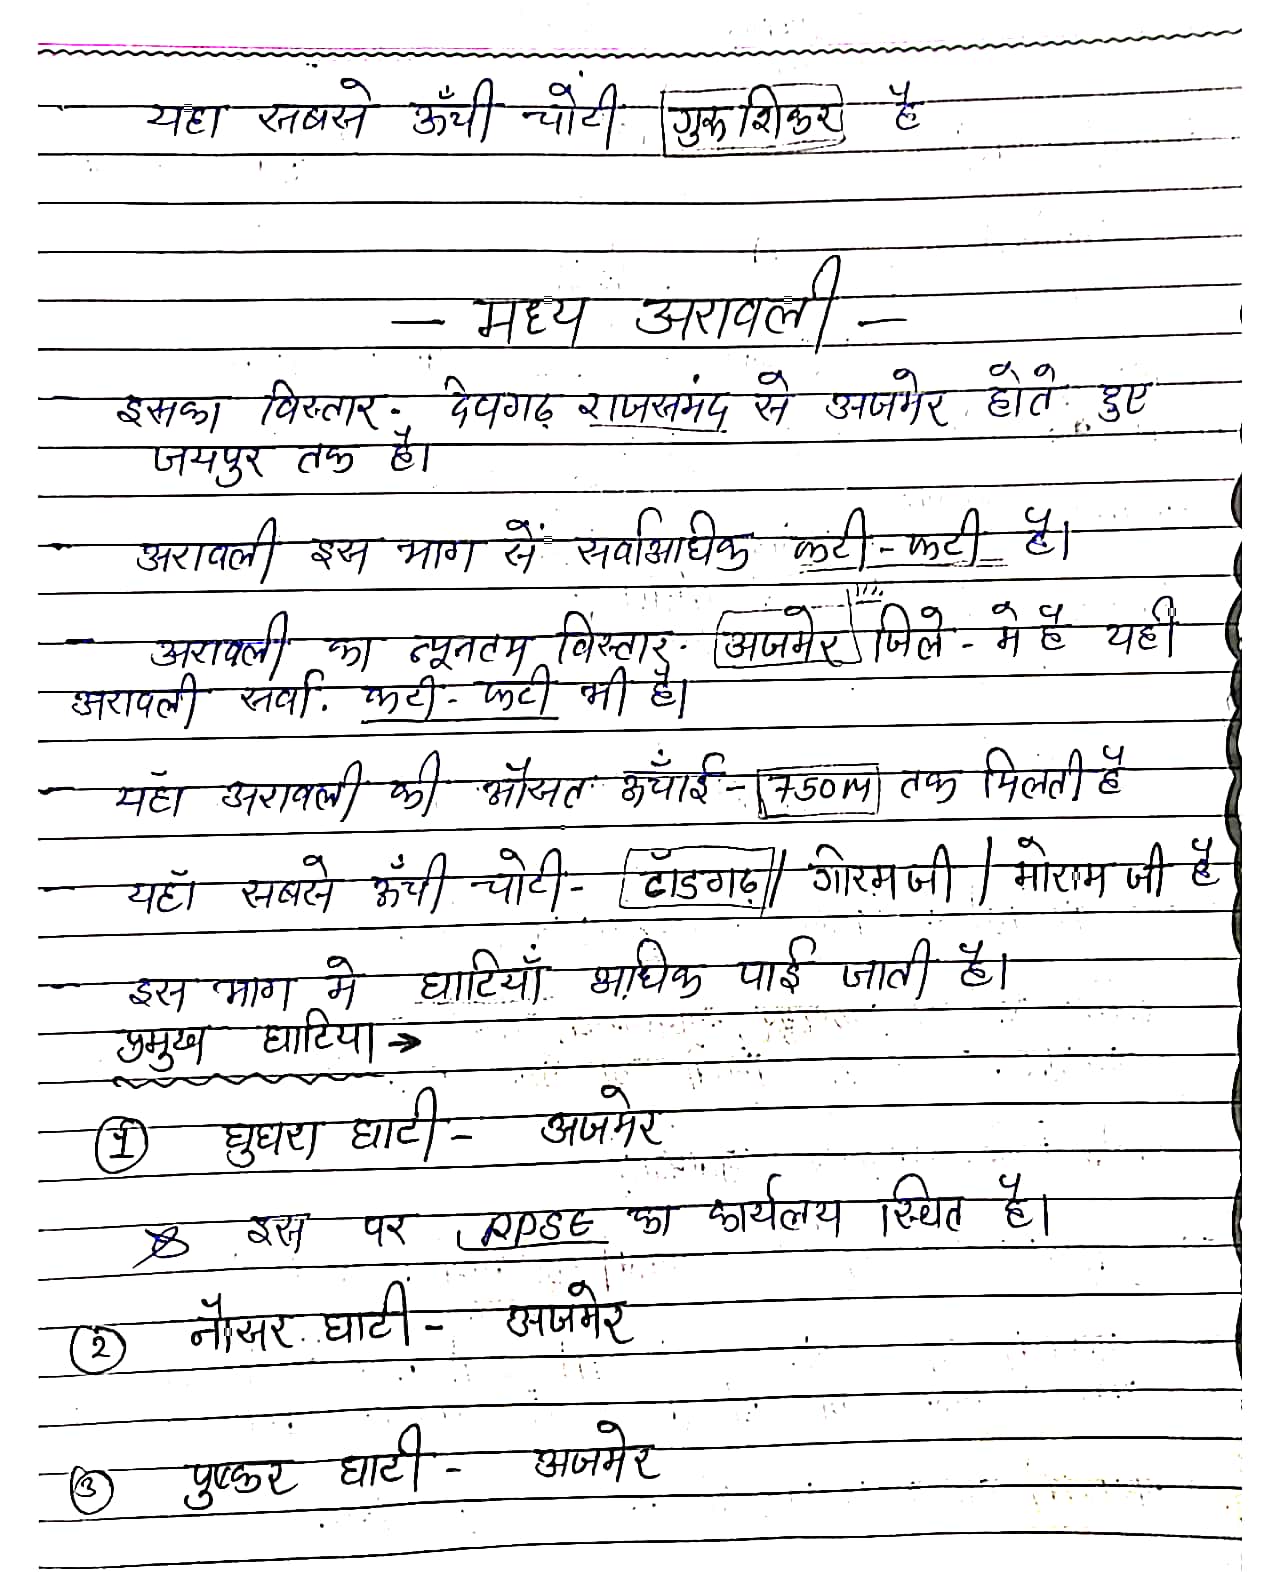 - यहा सबसे ऊँची चोटी गुरू शिकर है
- मध्य अरावली -
इसका विस्तार - देवगढ़ राजसमंद से अजमेर होते हुए
जयपुर तक है।
- अरावली इस भाग से सर्वाआधिक कटी - फटी है।
- अरावली का न्यूनतम विस्तार - अजमेर जिले - मे है यही
अरावली सर्वा. कटी - फटी भी है।
- यहाँ अरावली की औसत ऊँचाई - 750M तक मिलती है
- यहाँ सबसे ऊँची चोटी - टॉडगढ़ / गोरमजी / मोरामजी है
- इस भाग मे घाटियाँ अधिक पाई जाती है।
प्रमुख घाटिया →
① घुघरा घाटी - अजमेर
इस पर RPSE का कार्यलय स्थित है।
② नौसर घाटी - अजमेर
③ पुष्कर घाटी - अजमेर